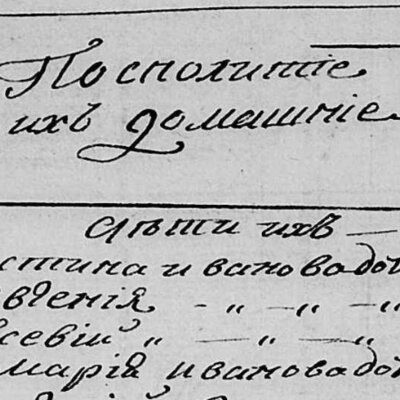 Посполитіе
ихъ домашніе
дѣти ихъ —
стина ивановадо
вденія - „ - „ - „
ксевій „ - „ - „
марія ивановадо